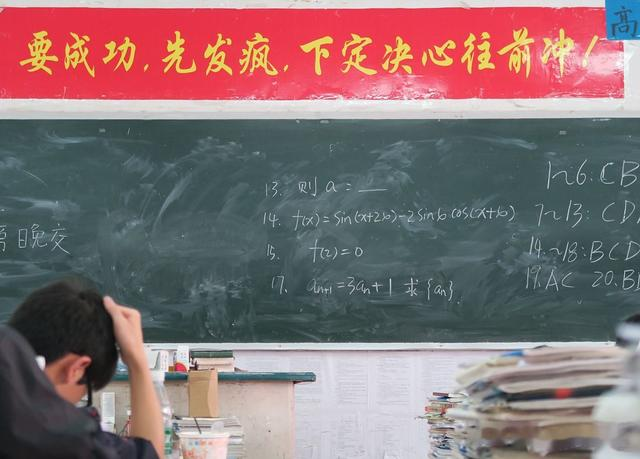 要成功，先发疯，下定决心往前冲！
高
13. 则 a = ___
14. f(x)=sin(x+2φ)-2sinφcos(x+φ)
15. f(2)=0
17. aₙ₊₁=3aₙ+1 求{aₙ}.
日晚交
1~6:CB
7~13: CD
14~18:BCD
19.AC 20.B